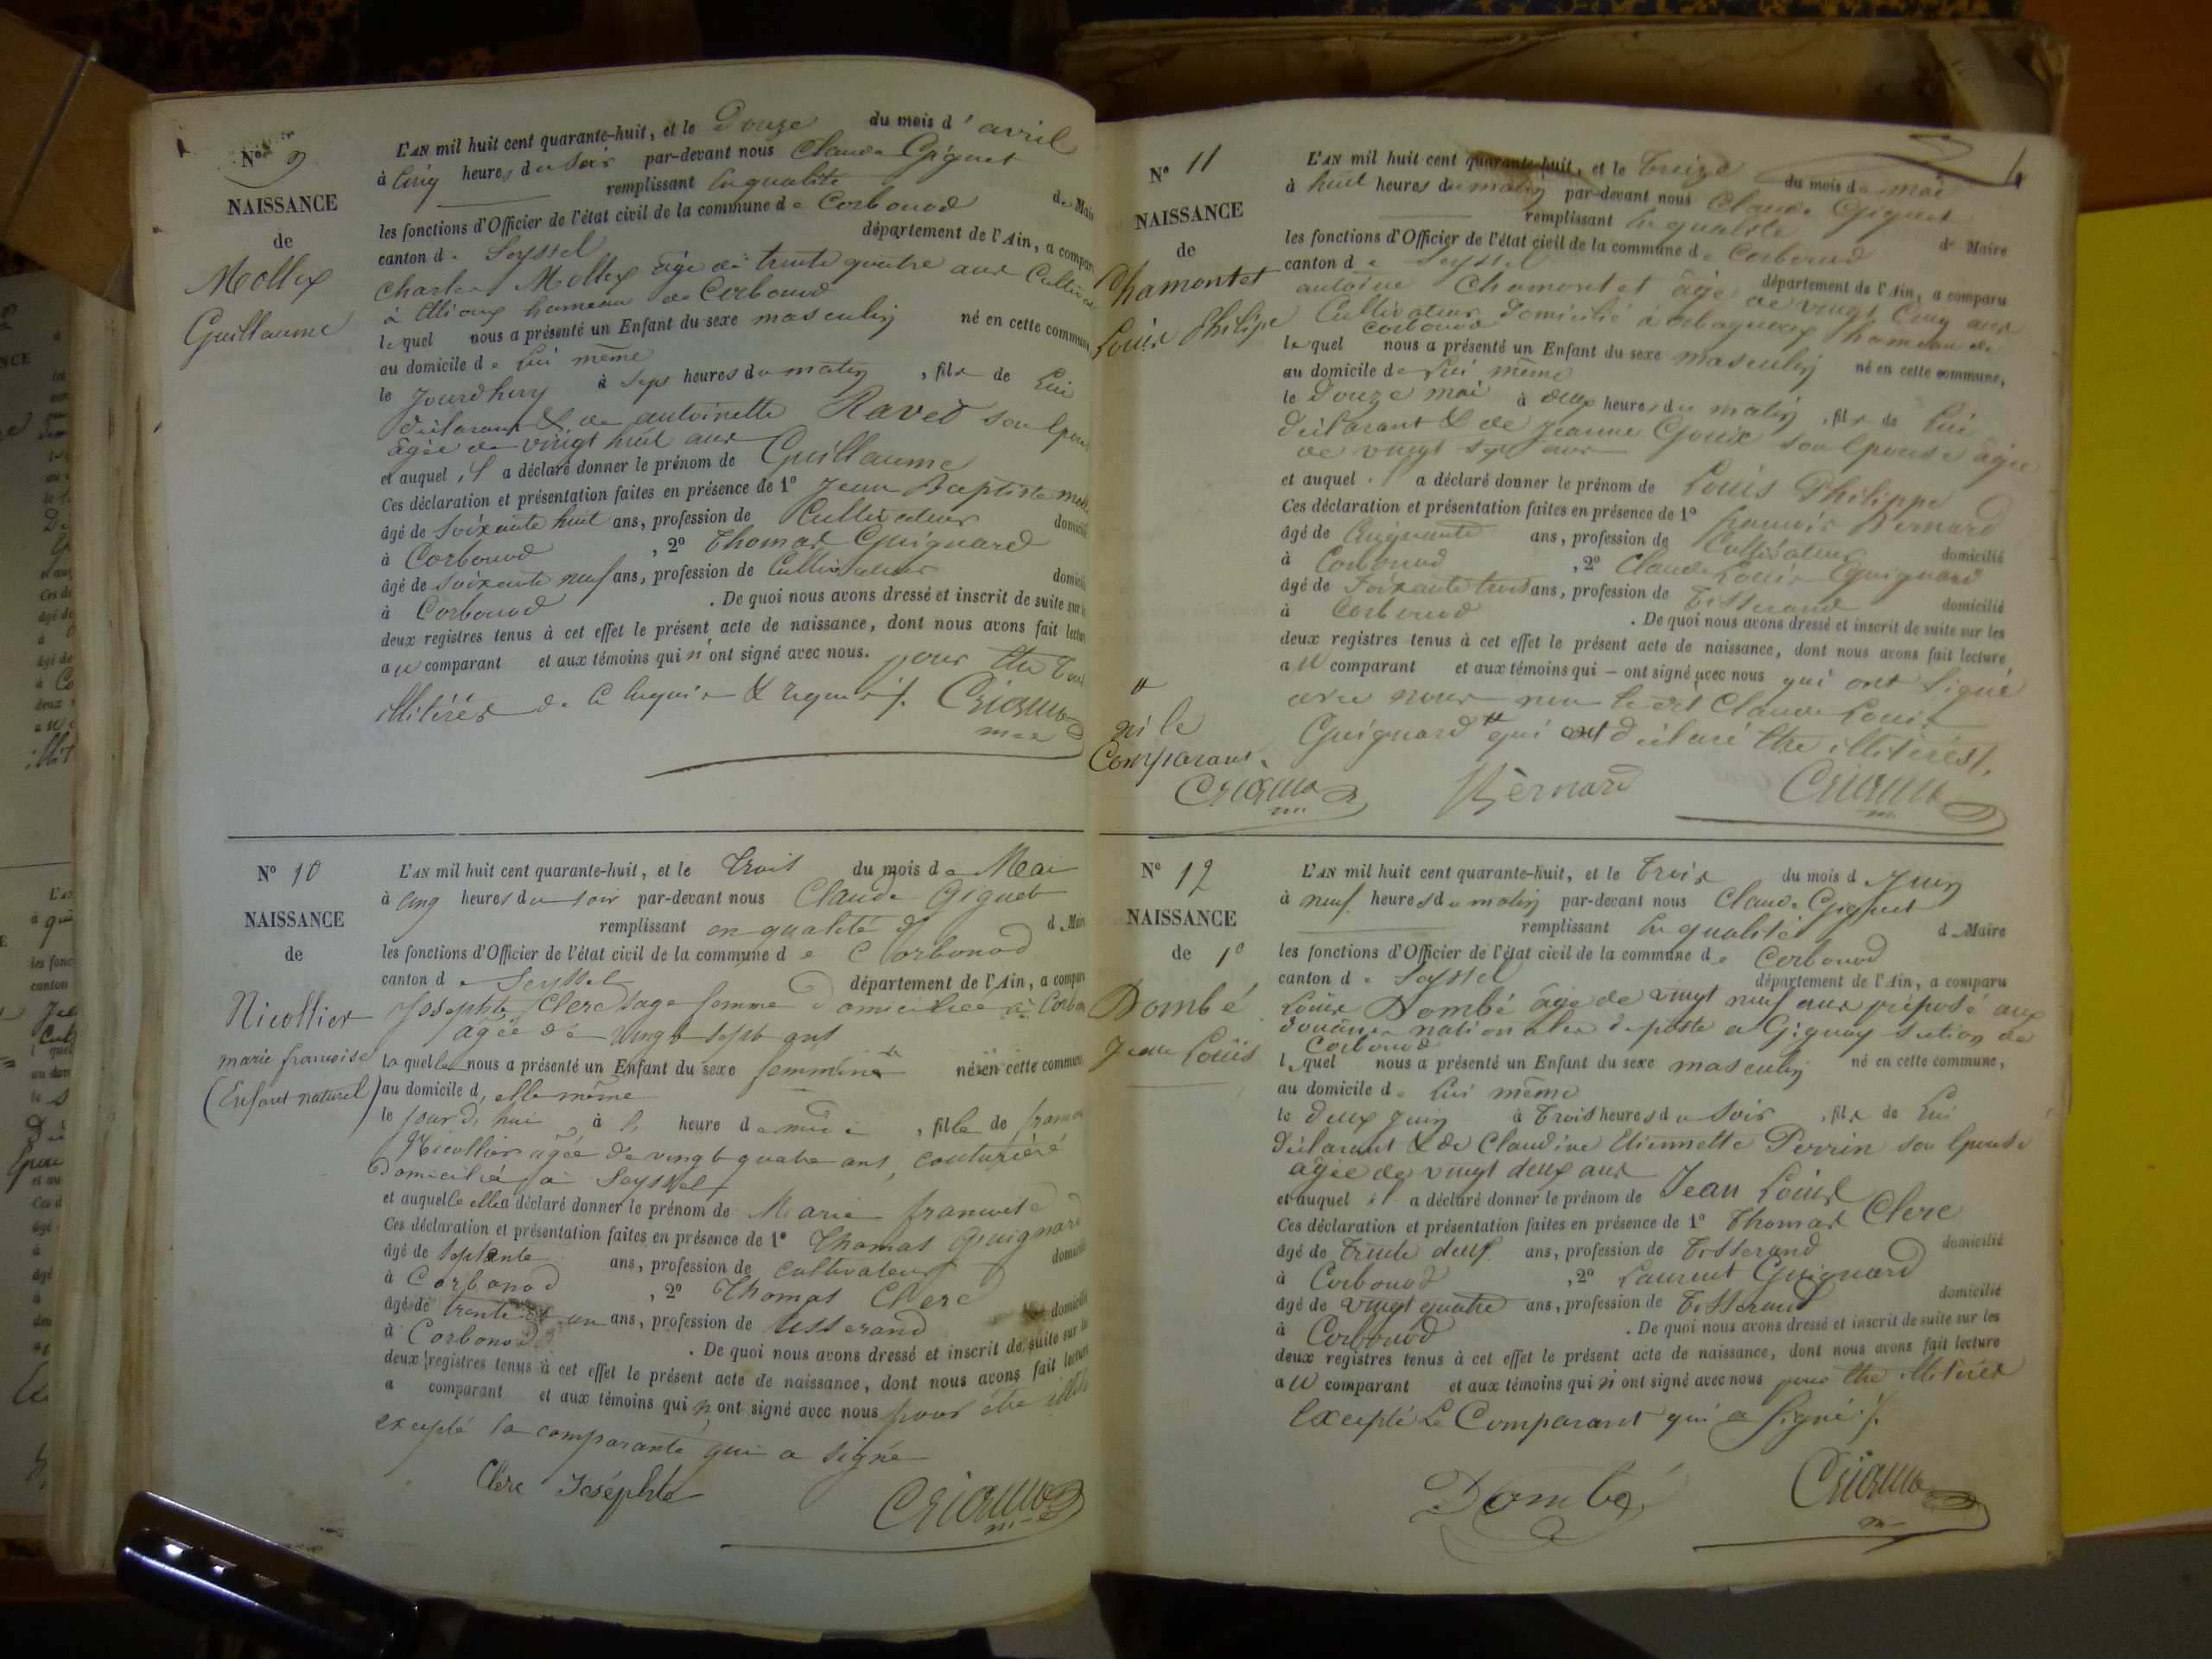 N° 9
NAISSANCE
de
Mollex
Guillaume
L'AN mil huit cent quarante-huit, et le Douze du mois d'avril
à Cinq heures du Soir par-devant nous Claude Giguet
remplissant en qualité de Maire
les fonctions d'Officier de l'état civil de la commune de Corbonod
canton de Seyssel département de l'Ain, a comparu
Charles Mollex âgé de trente quatre ans Cultivateur
à hameau de Corbonod
lequel nous a présenté un Enfant du sexe masculin né en cette commune,
au domicile de Lui même
le Jourdhuy à Sept heures du matin, fils de Lui
déclarant & de antoinette Ravet son Epouse
âgée de vingt huit ans
et auquel il a déclaré donner le prénom de Guillaume
Ces déclaration et présentation faites en présence de 1° Jean Baptiste
âgé de Soixante huit ans, profession de Cultivateur domicilié
à Corbonod, 2° Thomas Guignard
âgé de soixante neuf ans, profession de Cultivateur domicilié
à Corbonod. De quoi nous avons dressé et inscrit de suite sur les
deux registres tenus à cet effet le présent acte de naissance, dont nous avons fait lecture
au comparant et aux témoins qui n'ont signé avec nous. pour être tous
illitérés de ce enquis & requis ./.
N° 10
NAISSANCE
de
Nicollier
marie françoise
(Enfant naturel)
L'AN mil huit cent quarante-huit, et le trois du mois de Mai
à cinq heures du soir par-devant nous Claude Giguet
remplissant en qualité d d Maire
les fonctions d'Officier de l'état civil de la commune de Corbonod
canton de Seyssel département de l'Ain, a comparu
Josephte Clerc sage femme domiciliée à Corbonod
agée de vingt sept ans
laquelle nous a présenté un Enfant du sexe femminin né en cette commune,
au domicile d, elle même
le jour d, hui à heure de midi, fille de
Nicollier agée de vingt quatre ans, couturière
domiciliée à Seyssel
et auquelle elle a déclaré donner le prénom de Marie françoise
Ces déclaration et présentation faites en présence de 1° Thomas Guignard
âgé de septante ans, profession de cultivateur domicilié
à Corbonod, 2° Thomas Clerc
âgé de trente et un ans, profession de tisserand domicilié
à Corbonod. De quoi nous avons dressé et inscrit de suite sur les
deux registres tenus à cet effet le présent acte de naissance, dont nous avons fait lecture
a comparant et aux témoins qui n'ont signé avec nous pour être
excepté la comparante qui a signé
Clerc Joséphte
N° 11
NAISSANCE
de
Chamontet
Louis Philipe
L'AN mil huit cent quarante-huit, et le treize du mois de mai
à huit heures du matin par-devant nous Claude Giguet
remplissant en qualité de Maire
les fonctions d'Officier de l'état civil de la commune de Corbonod
canton de Seyssel département de l'Ain, a comparu
antoine Chamontet âgé de vingt Cinq ans
Cultivateur Domicilié à orbagnoux hameau de
Corbonod
lequel nous a présenté un Enfant du sexe masculin né en cette commune,
au domicile de Lui même
le Douze mai à deux heures du matin, fils de Lui
déclarant & de Jeanne Goux son Epouse âgée
de vingt sept ans
et auquel il a déclaré donner le prénom de Louis Philippe
Ces déclaration et présentation faites en présence de 1° francois Bernard
âgé de Cinquante ans, profession de Cultivateur domicilié
à Corbonod, 2° Claude Louis Guignard
âgé de Soixante trois ans, profession de Tisserand domicilié
à Corbonod. De quoi nous avons dressé et inscrit de suite sur les
deux registres tenus à cet effet le présent acte de naissance, dont nous avons fait lecture
au comparant et aux témoins qui – ont signé avec nous qui ont Signé
avec nous non le dit Claude Louis
Guignard # qui ont déclaré être illitérés ./.
#
ni le
Comparant.
Bernard
N° 12
NAISSANCE
de 1°
Dombé
Jean Louis
L'AN mil huit cent quarante-huit, et le trois du mois d Juin
à neuf heures du matin par-devant nous Claude Giguet
remplissant en qualité d Maire
les fonctions d'Officier de l'état civil de la commune de Corbonod
canton de Seyssel département de l'Ain, a comparu
Louis Dombé âgé de vingt neuf ans préposé aux
douanes nationales de poste a Gignay section de
Corbonod
lequel nous a présenté un Enfant du sexe masculin né en cette commune,
au domicile de Lui même
le deux Juin à trois heures du Soir, fils de Lui
déclarant & de Claudine Etiennette Perrin son Epouse
âgée de vingt deux ans
et auquel il a déclaré donner le prénom de Jean Louis
Ces déclaration et présentation faites en présence de 1° Thomas Clerc
âgé de Trente deux ans, profession de Tisserand domicilié
à Corbonod, 2° Laurent Guignard
âgé de vingt quatre ans, profession de Tisserand domicilié
à Corbonod. De quoi nous avons dressé et inscrit de suite sur les
deux registres tenus à cet effet le présent acte de naissance, dont nous avons fait lecture
au comparant et aux témoins qui n'ont signé avec nous pour être illitérés
Excepté Le Comparant qui a Signé ./.
Dombé